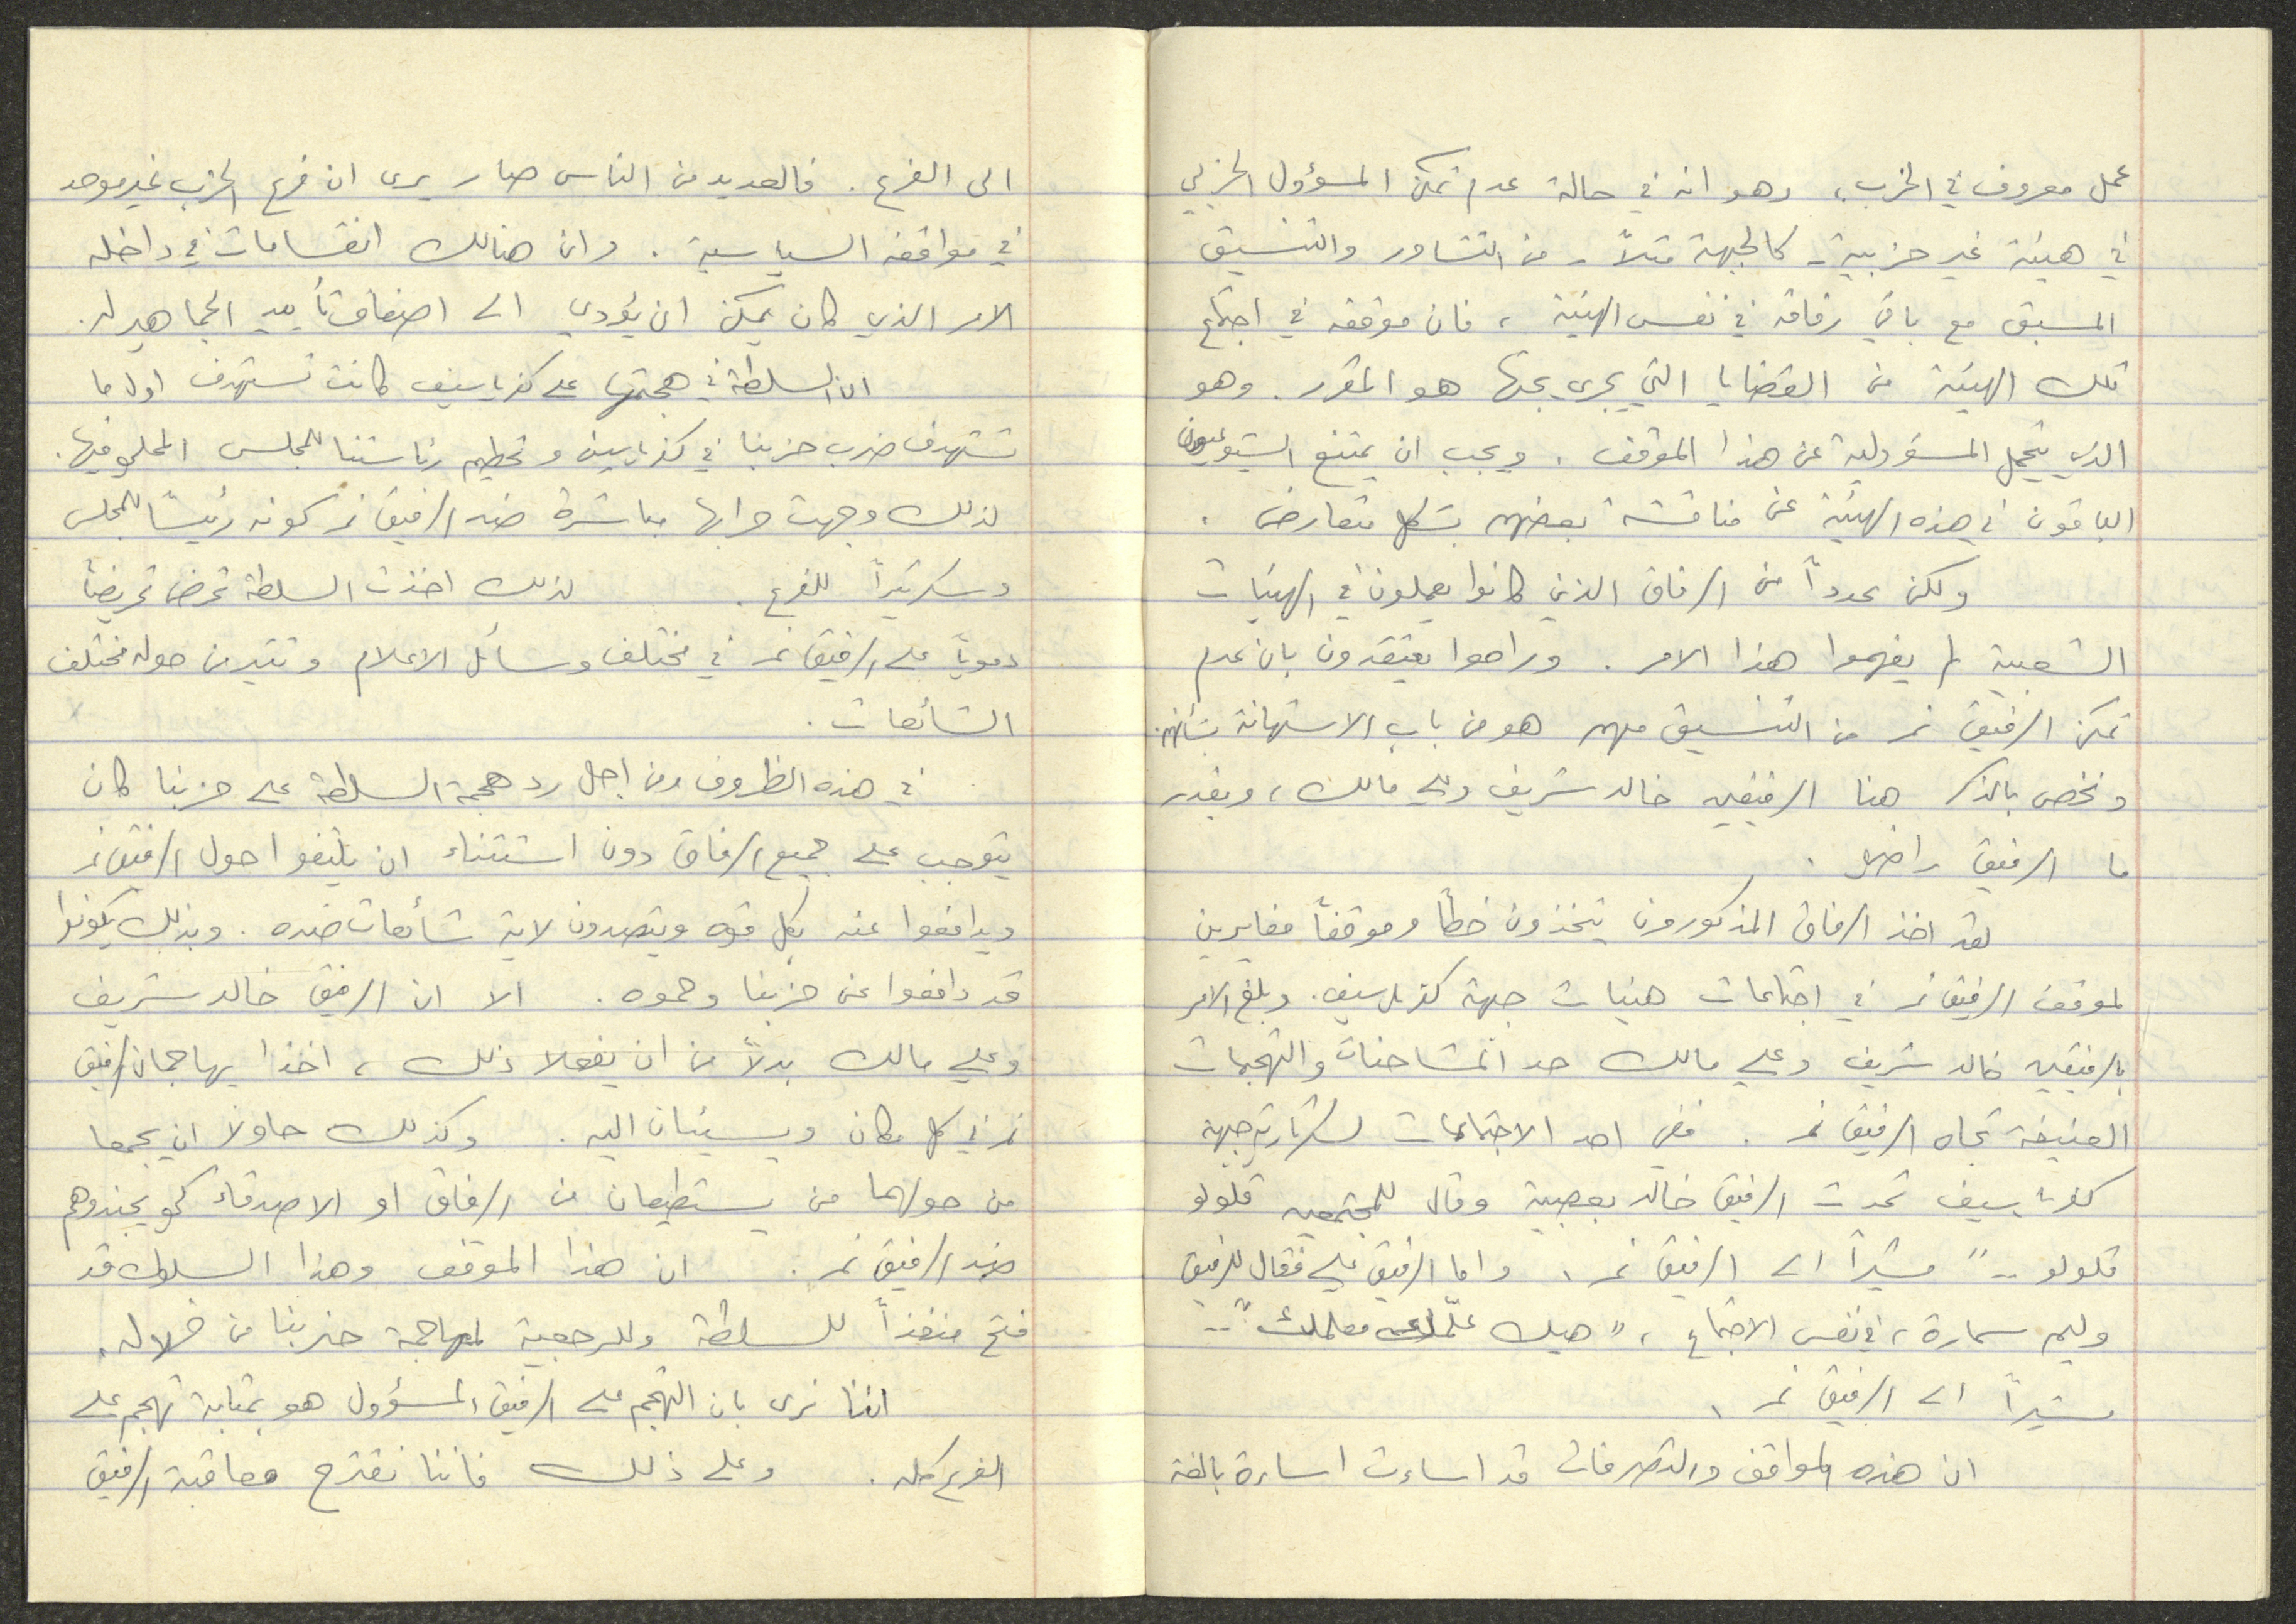 عمل معروف في الحزب، وهو انه في حالة عدم تمكن المسؤول الحزبي
في هيئة غير حزبية - كالجبهة مثلاً - من التشاور والتنسيق
المسبق مع باقي رفاقه في نفس الهيئة، فان موقفه في اجتماع
تلك الهيئة من القضايا التي يجري بحثها هو المقرر. وهو
الذي يتحمل المسؤولية عن هذا الموقف. ويجب ان يمتنع الشيوعيون
الباقون في هذه الهيئة عن مناقشة بعضهم بشكل متعارض.
ولكن عدداً من الرفاق الذين كانوا يعملون في الهيئات
الشعبية لم يفهموا هذا الامر. وراحوا يعتقدون بان عدم
تمكن الرفيق نمر من التنسيق معهم هو من باب الاستهانة بشأنهم.
ونخص بالذكر هنا الرفيقين خالد شريف وعلي مالك، وبقدر
ما الرفيق راضي.
لقد اخذ الرفاق المذكورون يتخذون خطاً وموقفاً مغايرين
لموقف الرفيق نمر في اجتماعات هيئات جبهة كفرياسيف. وبلغ الامر
بالرفيقين خالد شريف وعلي مالك حد المشاحنات والتهجمات
العنيفة تجاه الرفيق نمر. ففي احد الاجتماعات لسكرتارية جبهة
كفرياسيف تحدث الرفيق خالد بعصبية وقال للمجتمعين قلولو
قلولو .." مشيراً الى الرفيق نمر، واما الرفيق علي فقال للرفيق
وليم سمارة، في نفس الاجتماع، "هيك علّمك معلمك" ..
مشيراً الى الرفيق نمر.
ان هذه المواقف والتصرفات قد اساءت اساءة بالغة
الى الفرع. فالعديد من الناس صار يرى ان فرع الحزب غير موحد
في مواقفه السياسية. وان هنالك انقسامات في داخله
الامر الذي كان يمكن ان يؤدي الى اضعاف تأييد الجماهير له.
ان السلطة في هجمتها على كفرياسيف كانت تستهدف اول ما
تستهدف ضرب حزبنا في كفرياسيف وتحطيم رئاستنا للمجلس المحلي فيها.
لذلك وجهت حرابها مباشرة ضد الرفيق نمر كونه رئيساً للمجلس
وسكرتيراً للفرع. لذلك اخذت السلطة تحرض تحريضاً
دموياً على الرفيق نمر في مختلف وسائل الاعلام وتثير من حوله مختلف
الشائعات.
في هذه الظروف ومن اجل رد هجمة السلطة على حزبنا كان
يتوجب على جميع الرفاق دون استثناء ان يلتفوا حول الرفيق نمر
ويدافعوا عنه بكل قوه ويتصدون لاية شائعات ضده. وبذلك يكونوا
قد دافعوا عن حزبنا وحموه. الا ان الرفيق خالد شريف
وعلي مالك بدلاً من ان يفعلا ذلك، اخذا يهاجمان الرفيق
نمر في كل مكان ويسيئان اليه. وكذلك حاولا ان يجمعا
من حولهما من يستطيعان من الرفاق او الاصدقاء كي يجندوهم
ضد الرفيق نمر. ان هذا الموقف وهذا السلوك قد
فتح منفذاً للسلطة وللرجعية لمهاجمة حزبنا من خلاله.
اننا نرى بان التهجم على الرفيق المسؤول هو بمثابة تهجم على
الفرع كله. وعلى ذلك فاننا نقترح معاقبة الرفيق